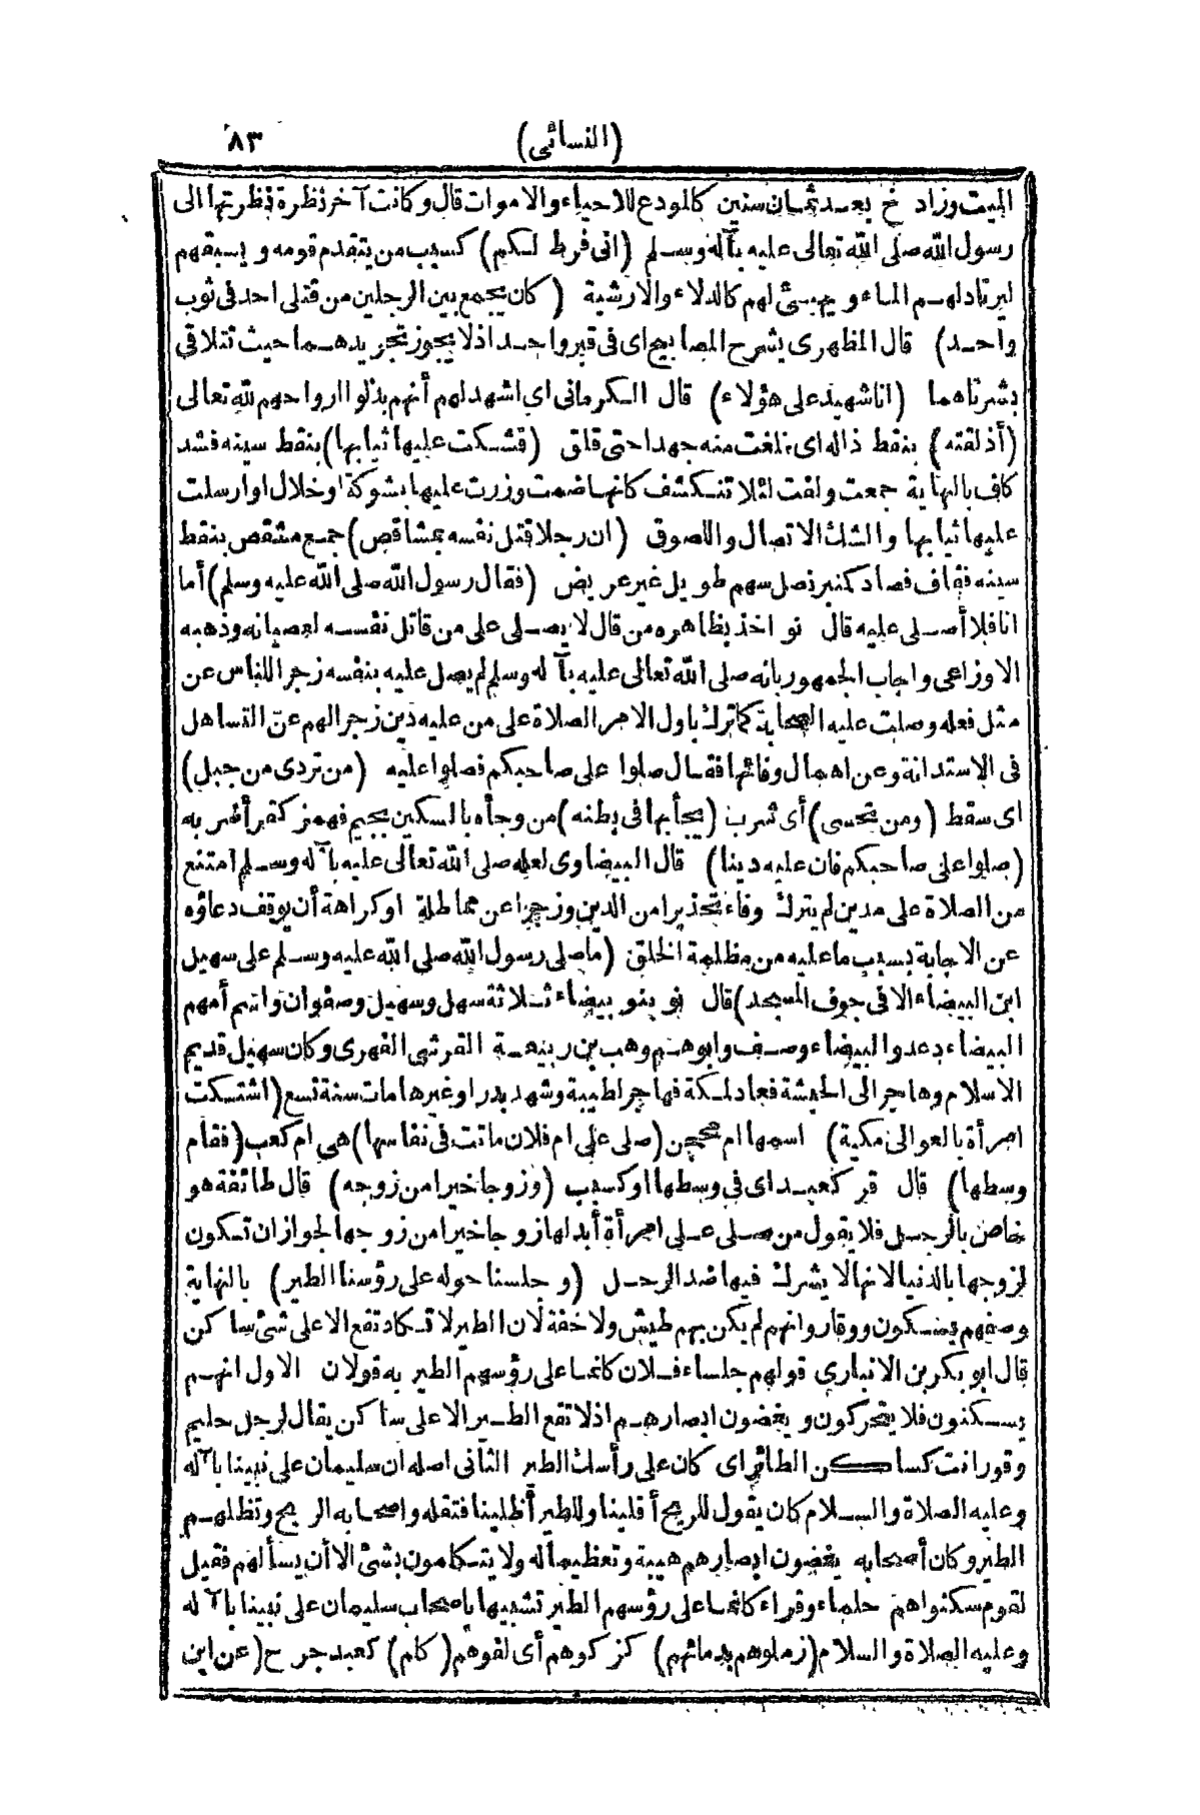 (النسائى) ٨٣
الميت وزاد خ بعد ثمان سنين كالمودع للاحياء والاموات قال وكانت آخر نظرة نظرتها الى
رسول الله صلى الله تعالى عليه بآله وسلم (انى فرط لكم) كسبب من يتقدم قومه ويسبقهم
ليرتاد لهم الماء ويهيئ لهم كالدلاء والارشية (كان يجمع بين الرجلين من قتلى احد فى ثوب
واحد) قال المظهرى بشرح المصابيح اى فى قبر واحد اذ لا يجوز تجريدهما حيث تتلاقى
بشرتاهما (انا شهيد على هؤلاء) قال الكرمانى اى اشهد لهم أنهم بذلوا ارواحهم لله تعالى
(أذلقته) بنقط ذاله اى بلغت منه جهدا حتى قلق (فشكت عليها ثيابها) بنقط سينه فشد
كاف بالنهاية جمعت ولفت لئلا تنكشف كانها ضمت وزرت عليها بشوكة او خلال او ارسلت
عليها ثيابها والشك الاتصال واللصوق (ان رجلا قتل نفسه بمشاقص) جمع مشقص بنقط
سينه فقاف فصاد كمنبر نصل سهم طويل غير عريض (فقال رسول الله صلى الله عليه وسلم) أما
انا فلا أصلى عليه قال نو اخذ بظاهره من قال لا يصلى على من قاتل نفسه لعصيانه وذهبه
الاوزاعى واجاب الجمهور بانه صلى الله تعالى عليه بآله وسلم لم يصل عليه بنفسه زجرا للناس عن
مثل فعله وصلت عليه الصحابة كما ترك باول الامر الصلاة على من عليه دين زجرا لهم عن التساهل
فى الاستدانة وعن اهمال وفائها فقال صلوا على صاحبكم فصلوا عليه (من تردى من جبل)
اى سقط (ومن تحسى) أى شرب (يجأ بها فى بطنه) من وجأه بالسكين بجيم فهمز كقرأ ضربه
(صلوا على صاحبكم فان عليه دينا) قال البيضاوى لعله صلى الله تعالى عليه بآله وسلم امتنع
من الصلاة على مدين لم يترك وفاء تحذيرا من الدين وزجرا عن مماطلة او كراهة أن يوقف دعاؤه
عن الاجابة بسبب ما عليه من مظلمة الخلق (ما صلى رسول الله صلى الله عليه وسلم على سهيل
ابن البيضاء الا فى جوف المسجد) قال نو بنو بيضاء ثلاثة سهل وسهيل وصفوان واسم أمهم
البيضاء دعد والبيضاء وصف وابوهم وهب بن ربيعة القرشى الفهرى وكان سهيل قديم
الاسلام وهاجر الى الحبشة فعاد لمكة فهاجر لطيبة وشهد بدرا وغيرها مات سنة تسع (اشتكت
امرأة بالعوالى مكية) اسمها ام محجن (صلى على ام فلان ماتت فى نفاسها) هى ام كعب (فقام
وسطها) قال قر كعبد اى فى وسطها او كسبب (وزوجا خيرا من زوجه) قال طائفة هو
خاص بالرجل فلا يقول من صلى على امرأة أبدلها زوجا خيرا من زوجها لجواز ان تكون
لزوجها بالدنيا لانها لا يشرك فيها ضد الرجل (وجلسنا حوله على رؤسنا الطير) بالنهاية
وصفهم بسكون ووقار وانهم لم يكن بهم طيش ولا خفة لان الطير لا تكاد تقع الا على شئ ساكن
قال ابو بكر بن الانبارى قولهم جلساء فلان كانما على رؤسهم الطير به قولان الاول انهم
يسكنون فلا يتحركون ويغضون ابصارهم اذ لا تقع الطير الا على ساكن يقال لرجل حليم
وقور انت كساكن الطائر اى كان على رأسك الطير الثانى اصله ان سليمان على نبينا بآله
وعليه الصلاة والسلام كان يقول للريح أقلينا وللطير أظلينا فتقله واصحابه الريح وتظلهم
الطير وكان أصحابه يغضون ابصارهم هيبة وتعظيما له ولا يتكلمون بشئ الا أن يسألهم فقيل
لقوم سكنوا هم حلماء وقراء كانما على رؤسهم الطير تشبيها باصحاب سليمان على نبينا بآله
وعليه الصلاة والسلام (زملوهم بدمائهم) كزكوهم أى لفوهم (كلم) كعبد جرح (عن ابن